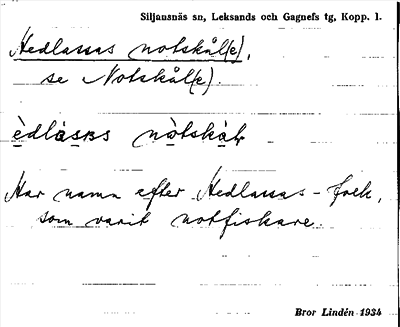 Siljansnäs sn, Leksands och Gagnefs tg, Kopp. l.
Hedlassas notskål(e),
se Notskål(e).
èdlàsas nòtskàɫ
Har namn efter Hedlassas-folk,
som varit notfiskare.
Bror Lindén 1934